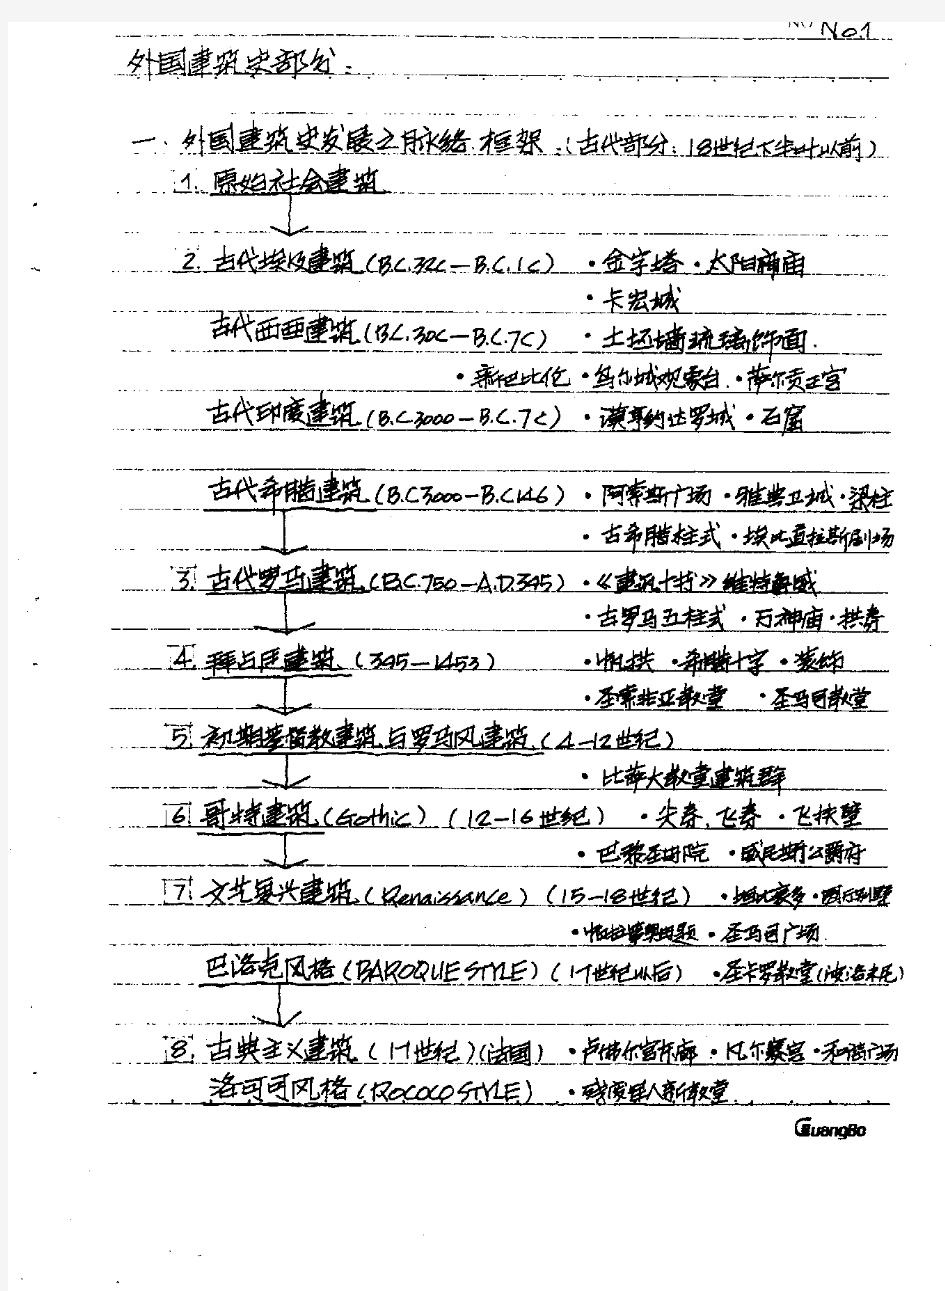 No No.1
外国建筑史部分:
一、外国建筑史发展之脉络框架:(古代部分:18世纪下半叶以前)
1. 原始社会建筑
2. 古代埃及建筑(B.C.32C—B.C.1C) ·金字塔·太阳神庙
·卡宏城
古代西亚建筑(B.C.30C—B.C.7C) ·土坯墙琉璃饰面.
·新巴比伦·乌尔城观象台.·萨尔贡王宫
古代印度建筑(B.C3000—B.C.7C) ·谟亨约达罗城·石窟
古代希腊建筑(B.C3000—B.C146) ·阿索斯广场·雅典卫城·梁柱
·古希腊柱式·埃比道拉斯剧场
3. 古代罗马建筑(B.C.750—A.D.395) ·《建筑十书》维特鲁威
·古罗马五柱式·万神庙·拱券
4. 拜占庭建筑(395—1453) ·帆拱·希腊十字·装饰
·圣索非亚教堂 ·圣马可教堂
5. 初期基督教建筑与罗马风建筑(4—12世纪)
·比萨大教堂建筑群
6. 哥特建筑(Gothic)(12—16世纪) ·尖券,飞券·飞扶壁
·巴黎圣母院·威尼斯公爵府
7. 文艺复兴建筑(Renaissance)(15—18世纪) ·坦比哀多·圆厅别墅
·帕拉第奥母题·圣马可广场
巴洛克风格(BAROQUE STYLE)(17世纪以后) ·圣卡罗教堂(波洛米尼)
8. 古典主义建筑(17世纪)(法国) ·卢佛尔宫东廊·凡尔赛宫·和谐广场
洛可可风格(ROCOCO STYLE) ·残废军人新教堂.
GuangBo